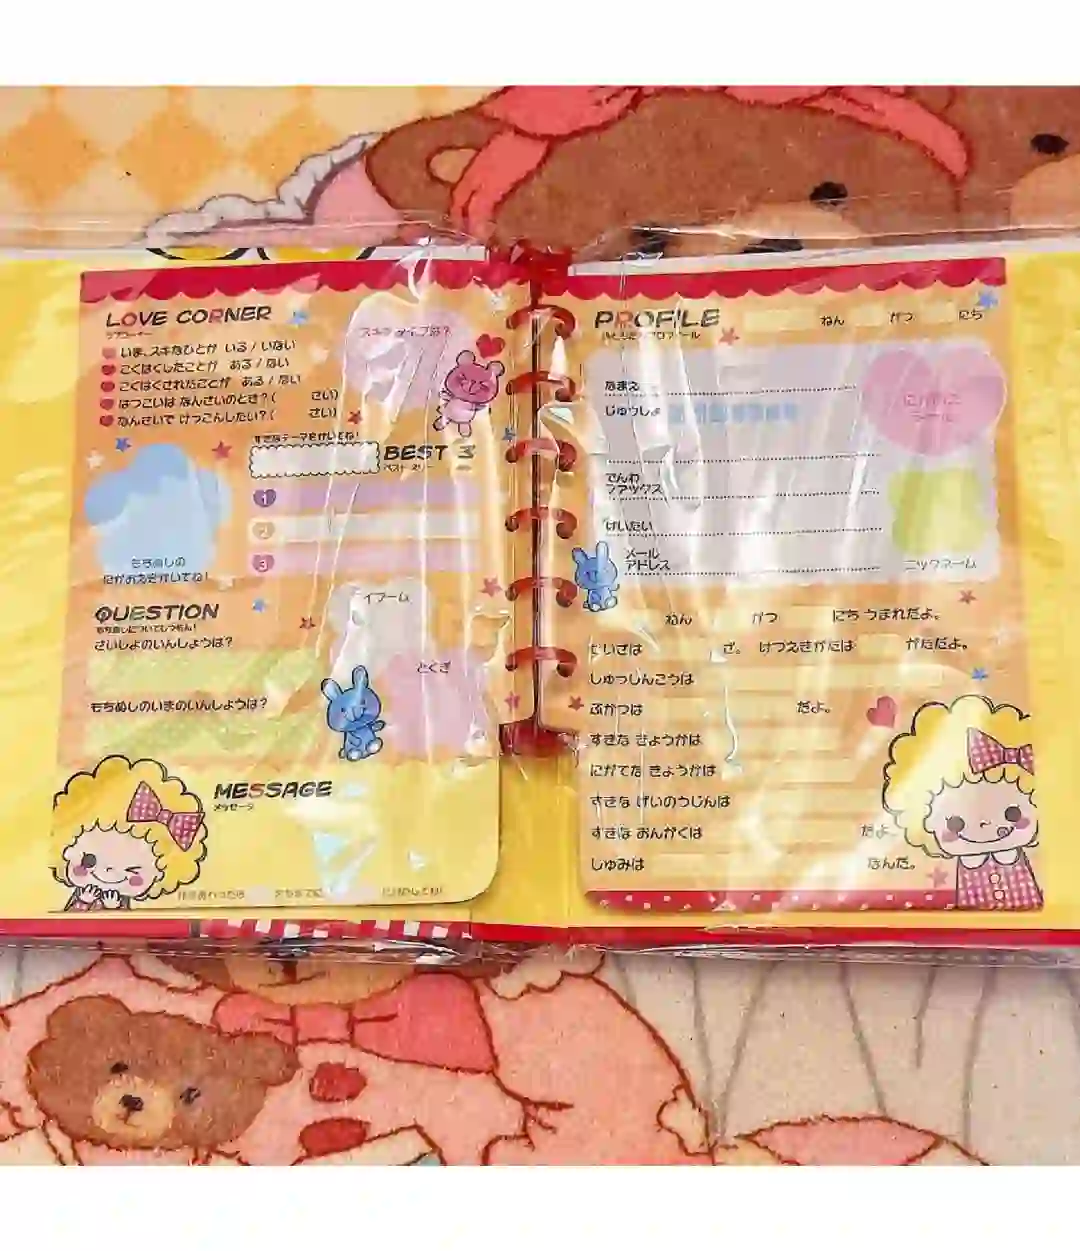 LOVE CORNER
ラブコーナー
いま、スキなひとが いる / いない
こくはくしたことが ある / ない
こくはくされたことが ある / ない
はつこいは なんさいのとき?( さい)
なんさいで けっこんしたい?( さい)
スキなタイプは?
すきなテーマをかいてね!
BEST 3
ベスト スリー
1
2
3
もちぬしの
にがおえをかいてね!
QUESTION
もちぬしについてしつもん!
さいしょのいんしょうは?
もちぬしのいまのいんしょうは?
とくぎ
MESSAGE
メッセージ
PROFILE
ねん がつ にち
なまえ
じゅうしょ
でんわ
ファックス
けいたい
メール
アドレス
ニックネーム
ねん がつ にち うまれだよ。
せいざは ざ。 けつえきがたは がただよ。
しゅっしんこうは
ぶかつは だよ。
すきな きょうかは
にがてな きょうかは
すきな げいのうじんは
すきな おんがくは だよ。
しゅみは なんだ。